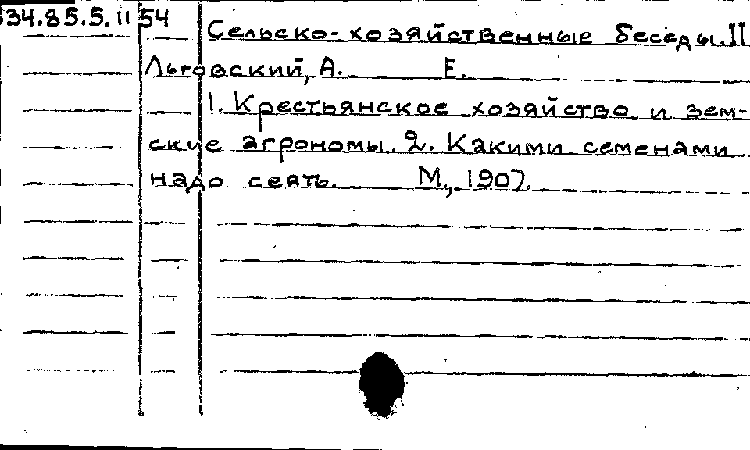 34.85.5.II 54
Сельско-хозяйственные беседы. II
Льговский, А. Е.
1. Крестьянское хозяйство и зем-
ские агрономы. 2. Какими семенами
надо сеять. М., 1907.